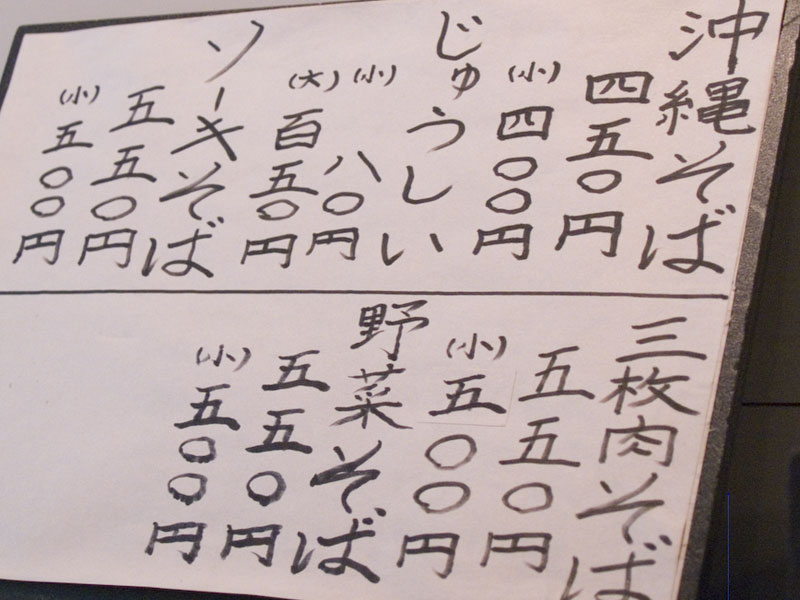 沖縄そば
四五〇円
(小)四〇〇円
じゅうしい
(小)八〇円
(大)百五〇円
ソーキそば
五五〇円
(小)五〇〇円
三枚肉そば
五五〇円
(小)五〇〇円
野菜そば
五五〇円
(小)五〇〇円